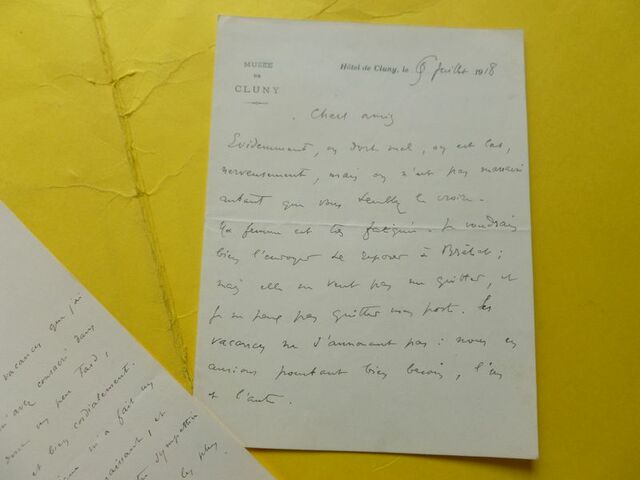 MUSÉE
DE
CLUNY
Hôtel de Cluny, le 6 juillet 1918
Chers amis
Evidemment, on dort mal, on est las,
nerveusement, mais on n'est pas
autant que vous voulez le croire.
Ma femme est très fatiguée. Je voudrais
bien l'envoyer se reposer à Bréhat ;
mais elle ne veut pas me quitter, et
je ne peux pas quitter mon poste. Les
vacances ne s'annoncent pas : nous en
aurions pourtant bien besoin, l'un
et l'autre.
vacances que j'ai
avez conservé dans
un peu tard,
et bien cordialement.
m'a fait un
et
sympathie
les plus